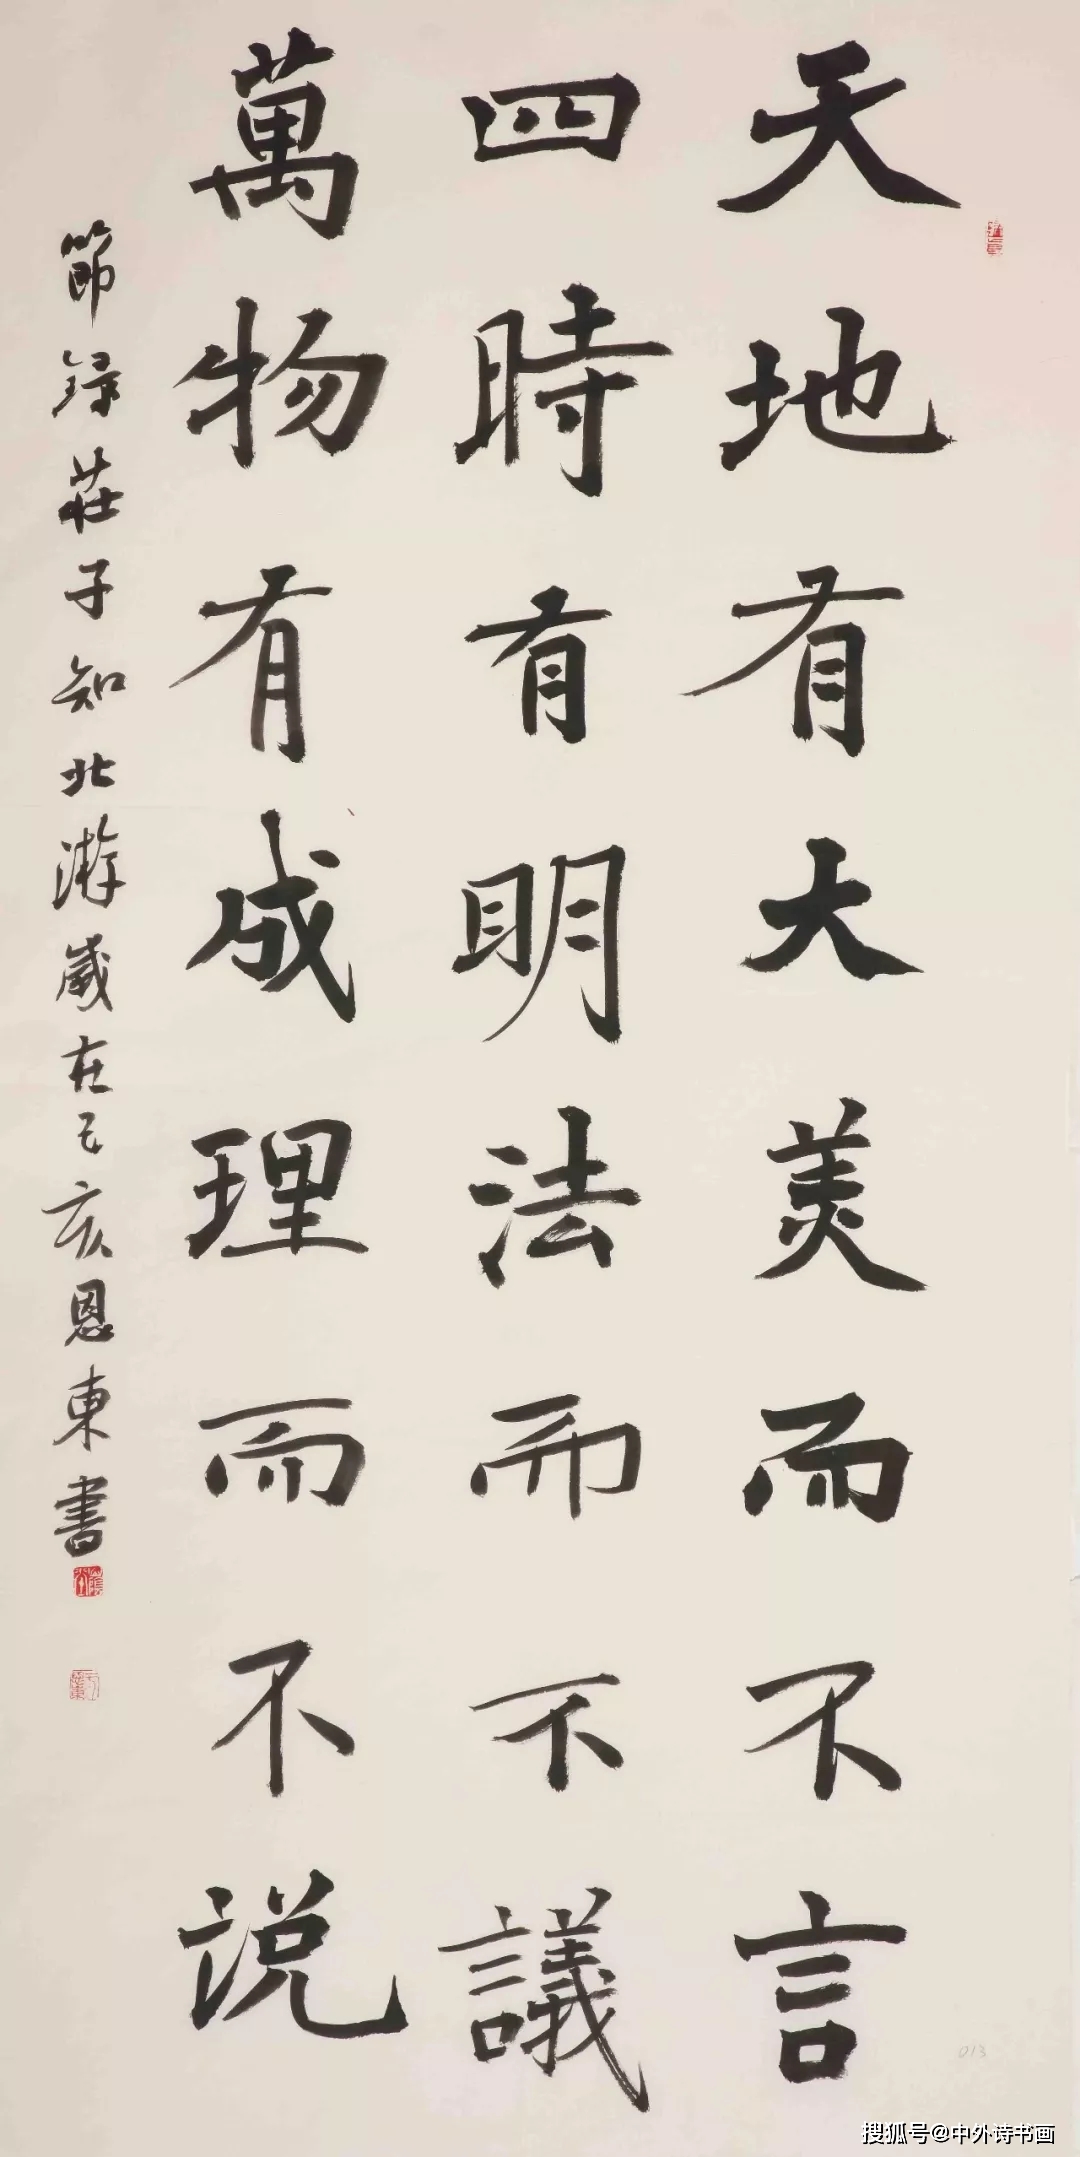 天地有大美而不言
四時有明法而不議
萬物有成理而不说
節錄莊子知北游歲在己亥恩東書
013
搜狐号@中外诗书画